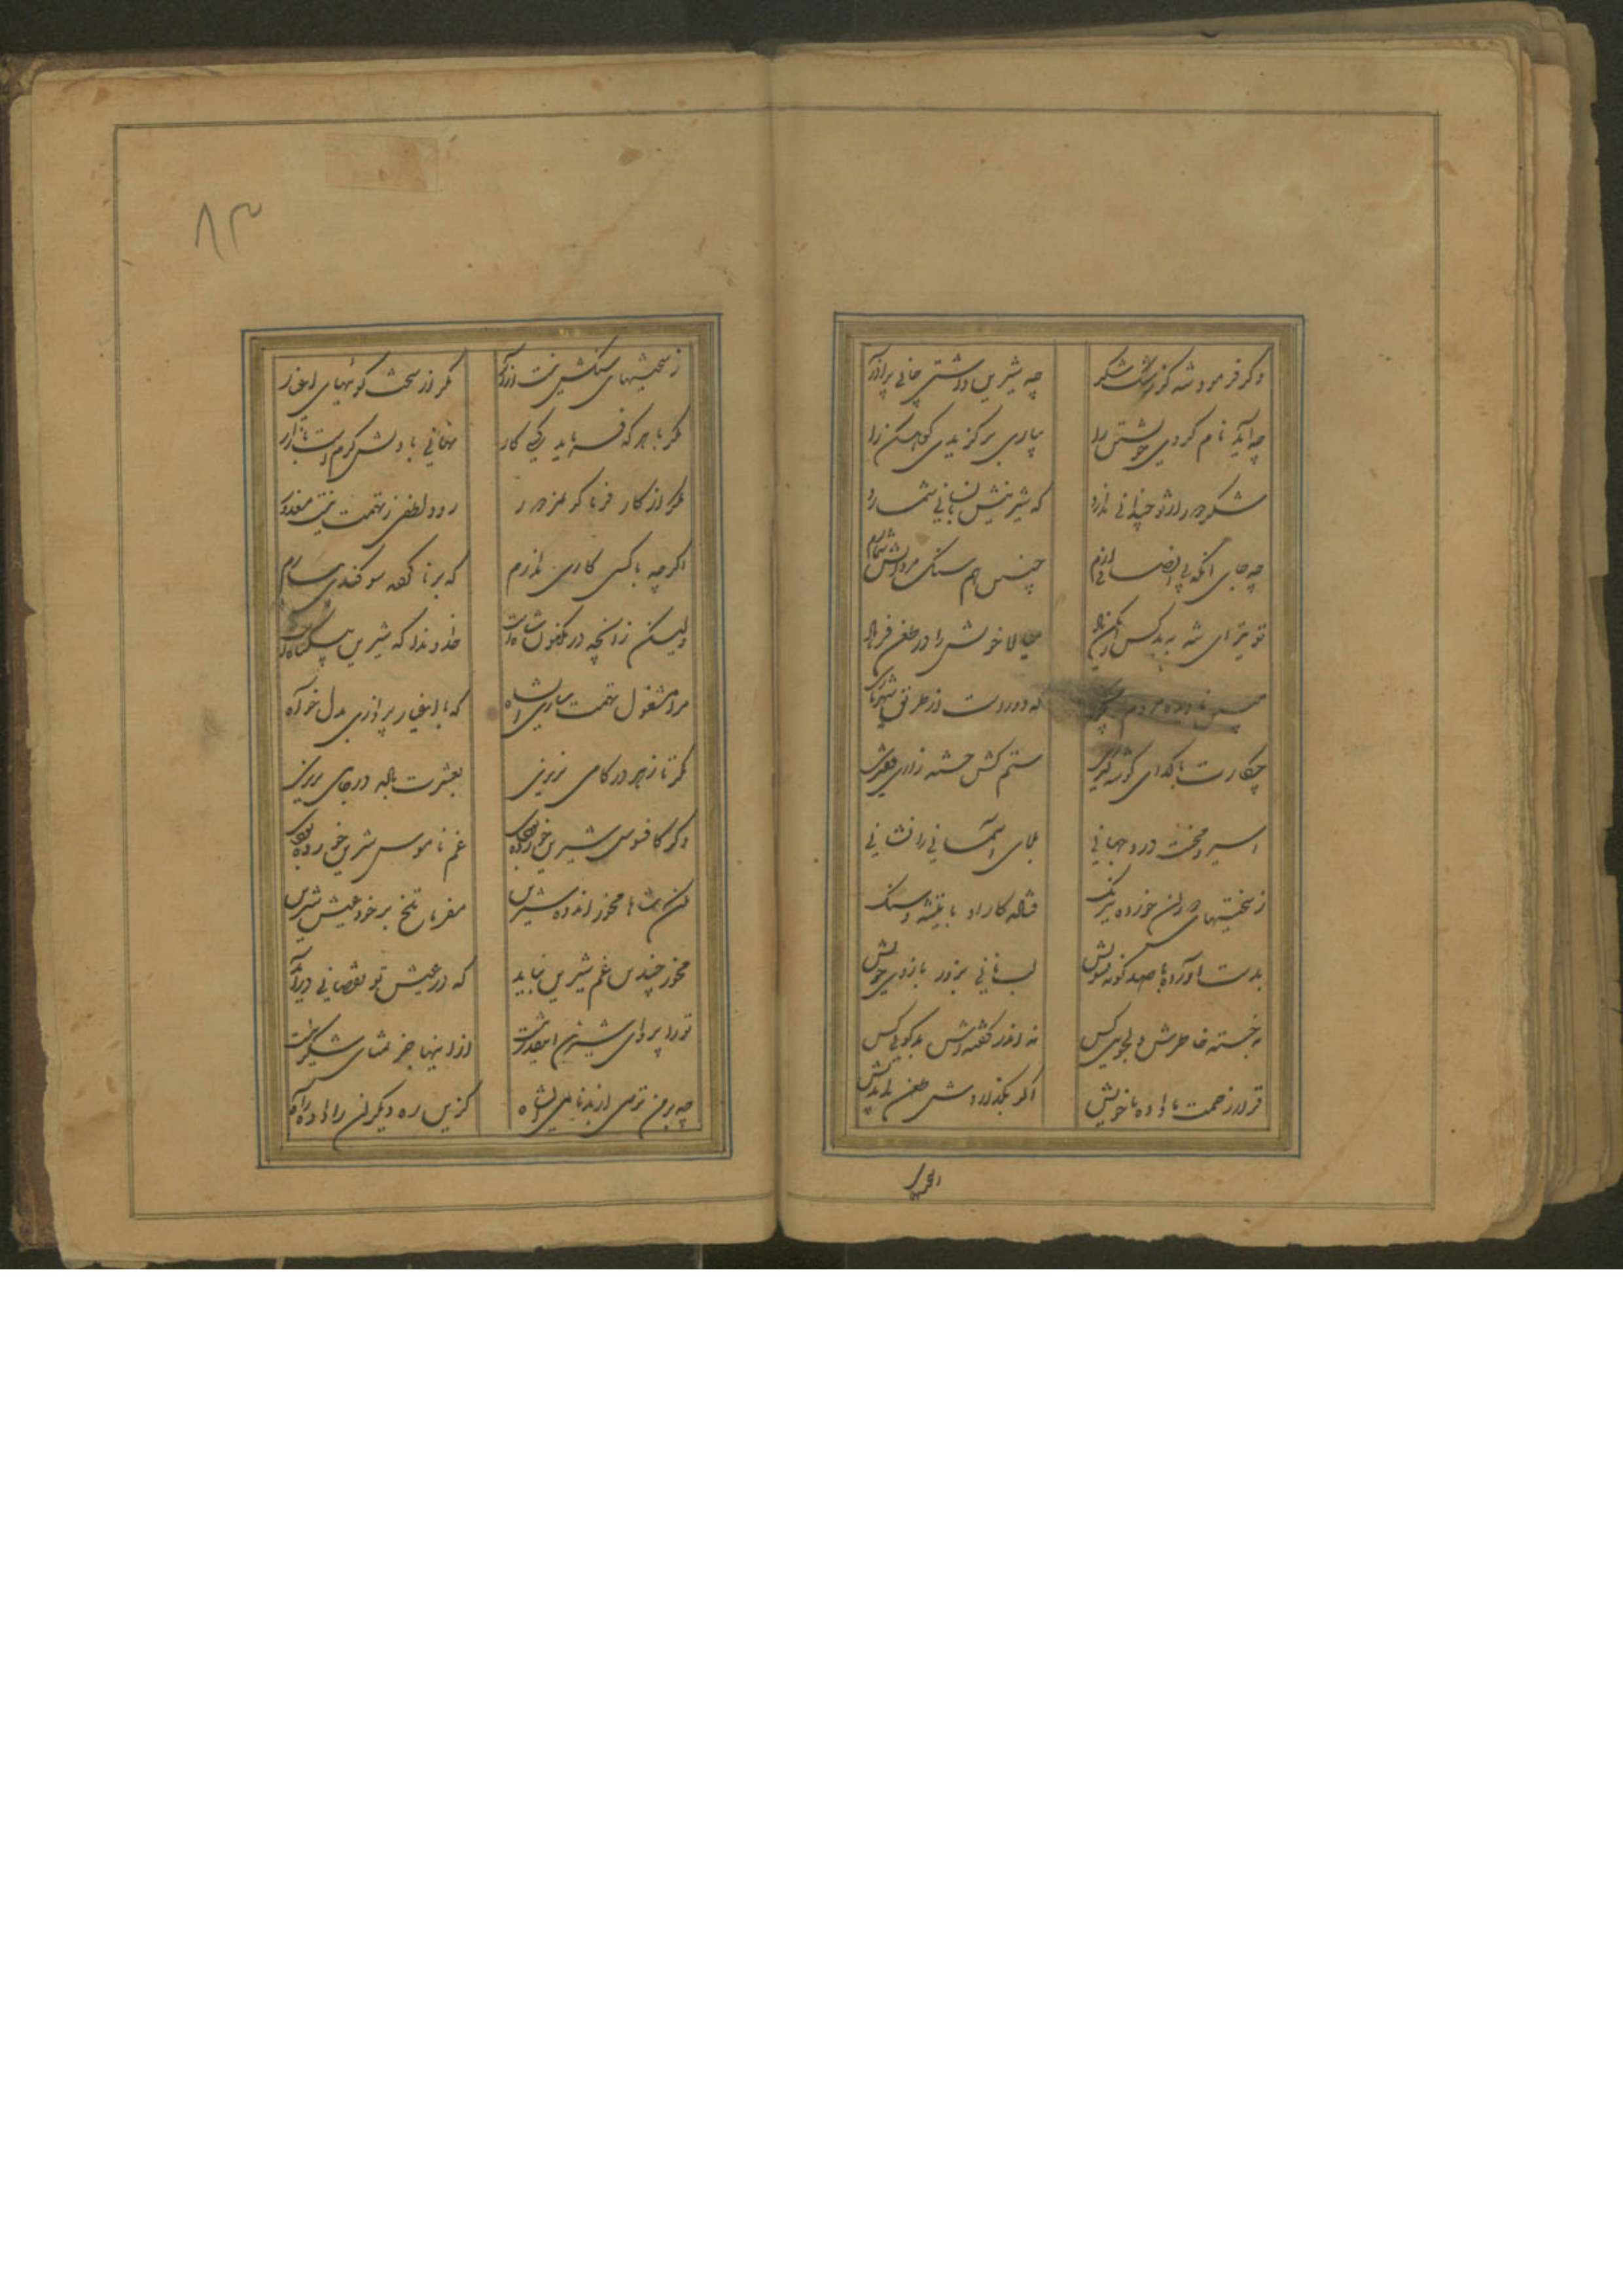 وکر فرمود شه کز رشک شکر چه شیرین داشتی جانی پر آذر
چه آید نام کردی خویشتن را بیاری برگزیدی کوهکن را
شکر خود را ازو چندانی ندارد که شیرینش بنانی شمارد
چه جای آنکه بی انصافی آرم چنین هم سنک مردانش شمارم
تو نیز ای شه به بد کس را مکن یاد میالا خویش را در طعن فرهاد
که دور است از طریق شهریاری
چکارت با کدای کوشه کیری ستم کش خسته زاری فقیری
اسیر محنت درد جهانی بلای آسمانی را نشانی
ز سختیهای دوران خورده نیرنک فتاده کار او با تیشه و سنک
بدست آورده با صد کونه تشویش لب نانی بزور بازوی خویش
نه جسته خاطرش دلجویی کس نه اندر کفته‌وش بدکویی کس
قرار زحمت تا داده با خویش اکر بکذاردش طعن بداندیش
اکر چه
۸۳
ز سختیهای سنکش نیست آزار مکر از سخت کوئیهای اغیار
مکر با هر که فرماید یکی کار نهانی با ویش کرم است بازار
مکر از کار فرما کر مزدور رود لطفی ز تهمت نیست معذور
اکر چه با کسی کاری ندارم که بر ناکفته سوکندی بیارم
ولیکن زانچه در مکنون شاه است خداوندا که شیرین بیکناه است
مرا مشغول تهمت ساری ای شاه که با اغیار پردازی بدل خواه
مکر تا زهر در کامی نریزی بعشرت باده در جامی نریزی
وکر کافسوس شیرین خورده بودی غم ناموس شیرین خورده بودی
مکن شاها مخور اندوه شیرین مفرما تلخ بر خود عیش شیرین
مخور چندین غم شیرین نباید که در عیش تو نقصانی درآید
تو را پروای شیرین اینقدر نیست از اینها جز تمنای شکر نیست
چه بر من ترسی از بدنامی ای شاه کزین ره دیکران را داده‌ای راه